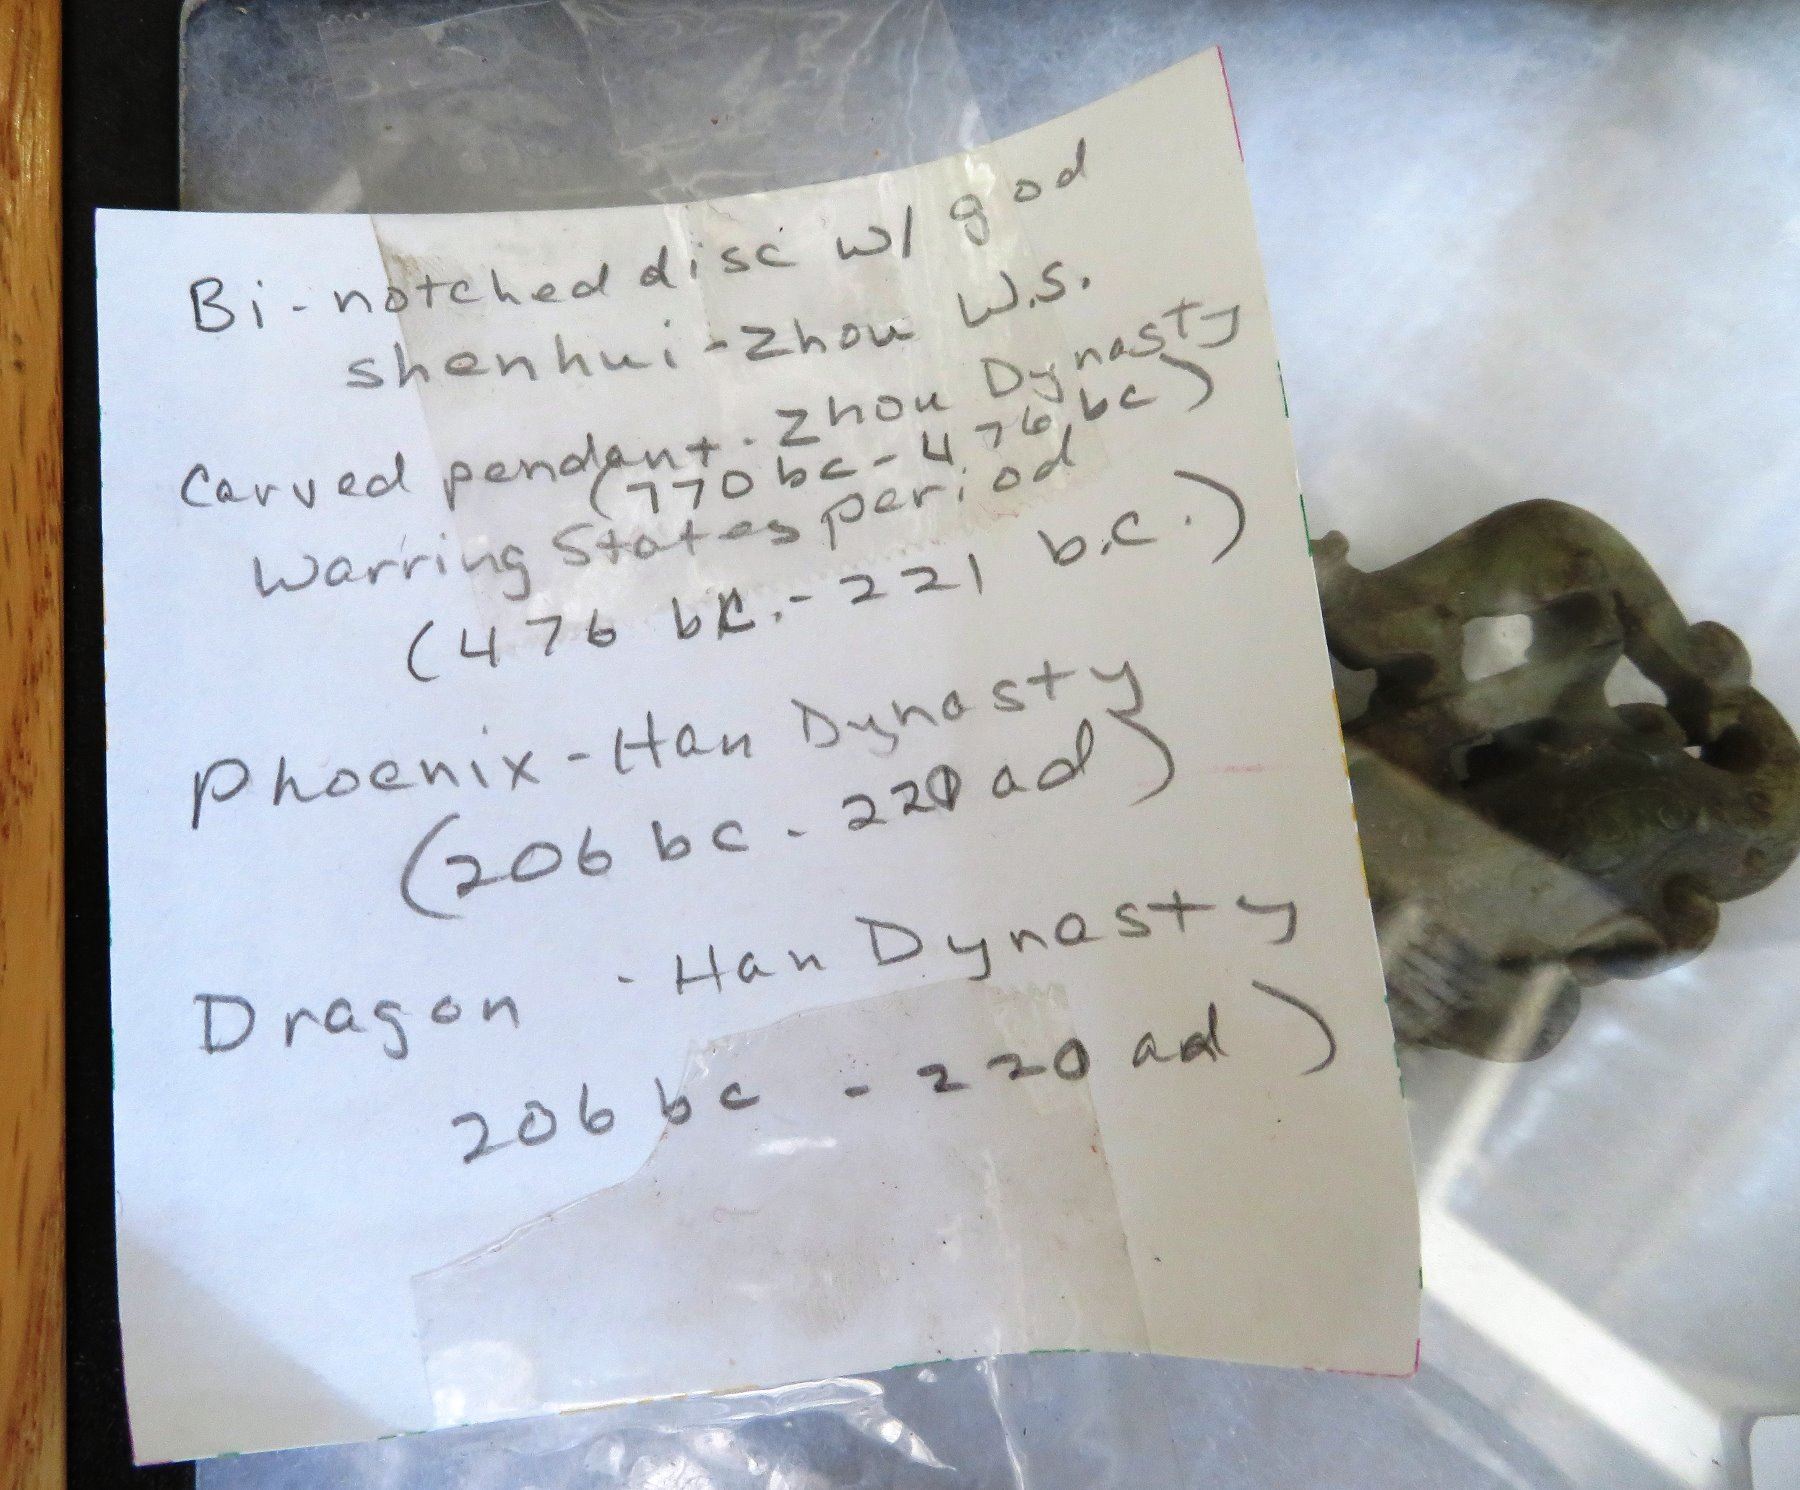 Bi-notched disc w/ god
shenhui-Zhou W.S.
Carved pendant. Zhou Dynasty
(770 bc-476 bc)
Warring States period
(476 bc.-221 b.c.)
Phoenix-Han Dynasty
(206 bc - 220 ad)
Dragon - Han Dynasty
206 bc - 220 ad)